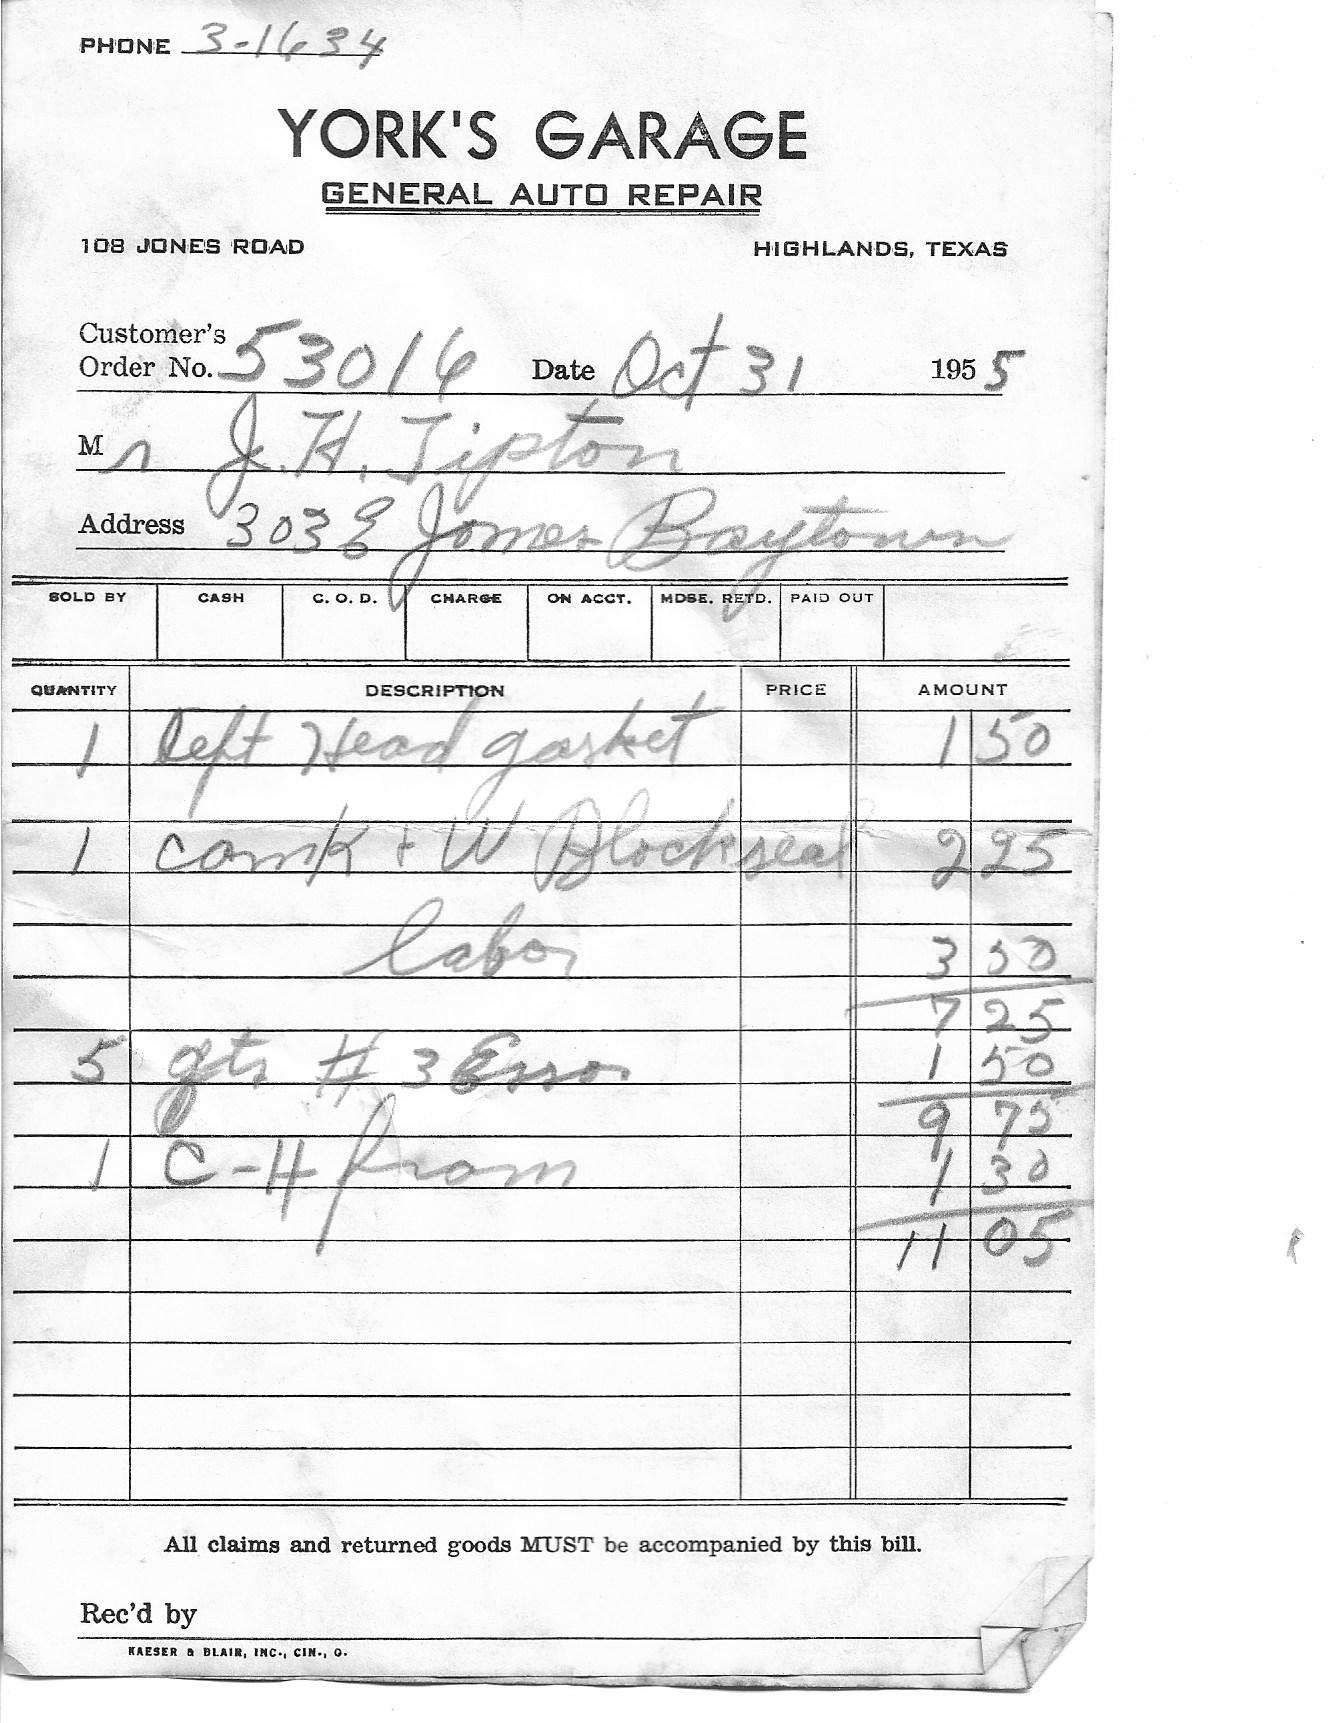 PHONE 3-1634
YORK'S GARAGE
GENERAL AUTO REPAIR
108 JONES ROAD HIGHLANDS, TEXAS
Customer's
Order No. 53016 Date Oct 31 1955
Mr J. H. Tipton
Address 303 E James Baytown
SOLD BY CASH C. O. D. CHARGE ON ACCT. MDSE. RETD. PAID OUT
QUANTITY DESCRIPTION PRICE AMOUNT
1 left Head gasket 1 50
1 K + W Blockseal 2 25
labor 3 50
7 25
5 qts # 3 Esso 1 50
9 75
1 C-4 from 1 30
11 05
All claims and returned goods MUST be accompanied by this bill.
Rec'd by
KAESER & BLAIR, INC., CIN., O.